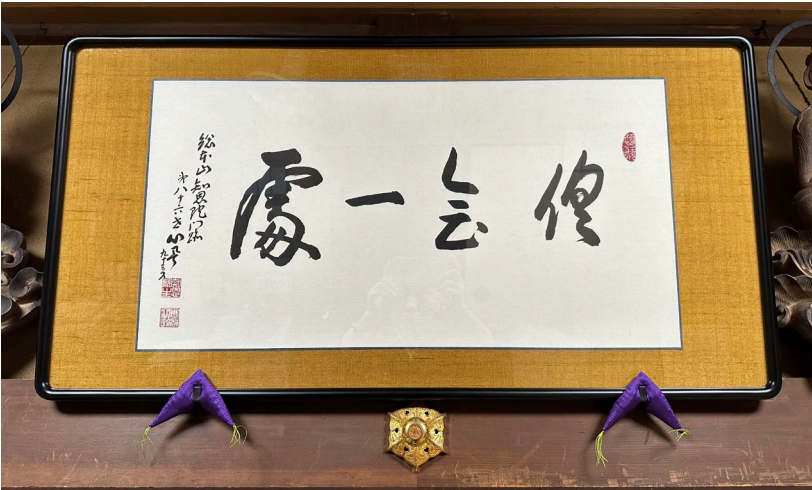 倶会一處
総本山知恩院門跡
第八十六世心誉